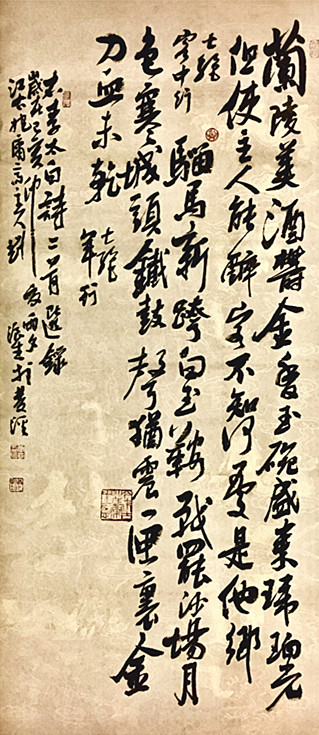 蘭陵美酒鬱金香玉碗盛來琥珀光
但使主人能醉客不知何處是他鄉
七絕
客中行
騮馬新跨白玉鞍戰罷沙場月
色寒城頭鐵鼓聲猶震匣裏金
刀血未乾
七絕
軍行
李太白詩二首選録
歲在己亥仲夏雨夕